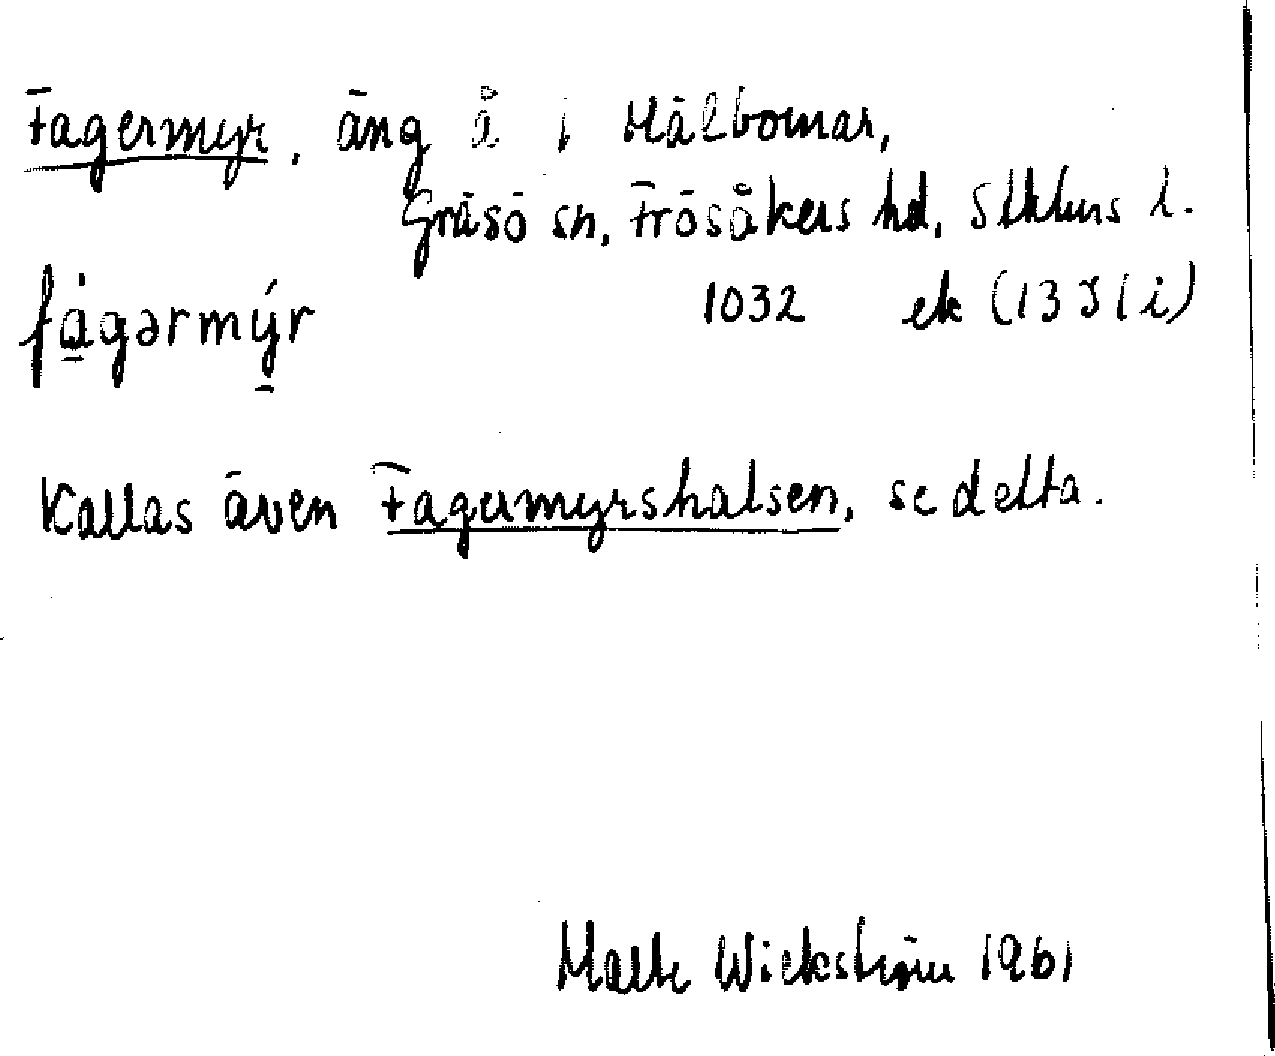 Fagermyr, äng å i Målbomar,
Gräsö sn, Frösåkers hd, Sthlms l.
fágərmýr 1032 ek (13 I 1 i)
Kallas även Fagermyrshalsen, se detta.
Malte Wickström 1961